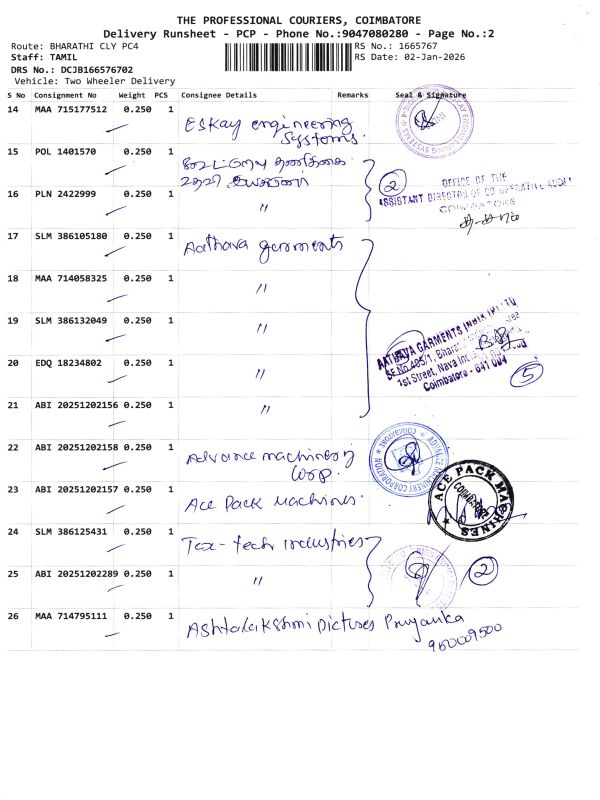 THE PROFESSIONAL COURIERS, COIMBATORE
Delivery Runsheet - PCP - Phone No.:9047080280 - Page No.:2
Route: BHARATHI CLY PC4
RS No.: 1665767
Staff: TAMIL
RS Date: 02-Jan-2026
DRS No.: DCJB166576702
Vehicle: Two Wheeler Delivery
S No Consignment No Weight PCS Consignee Details Remarks Seal & Signature
14 MAA 715177512 0.250 1 Eskay engineering
Systems.
15 POL 1401570 0.250 1
16 PLN 2422999 0.250 1 "
2
OFFICE OF THE
ASSISTANT DIRECTOR OF CO OPERATIVE AUDIT
COIMBATORE
17 SLM 386105180 0.250 1 Aathava garments
18 MAA 714058325 0.250 1 "
19 SLM 386132049 0.250 1 "
20 EDQ 18234802 0.250 1 "
21 ABI 20251202156 0.250 1 "
AATHAVA GARMENTS INDIA (P) LTD
SF.No.485/1, Bharat
1st Street, Nava In
Coimbatore - 641 004
5
22 ABI 20251202158 0.250 1 Advance machinery
Corp.
ADVANCE MACHINERY CORPORATION
COIMBATORE
23 ABI 20251202157 0.250 1 Ace Pack Machines.
ACE PACK MACHINES
COIMBATORE
24 SLM 386125431 0.250 1 Tex-tech industries
25 ABI 20251202289 0.250 1 "
2
26 MAA 714795111 0.250 1 Ashtalakshmi Pictures Priyanka